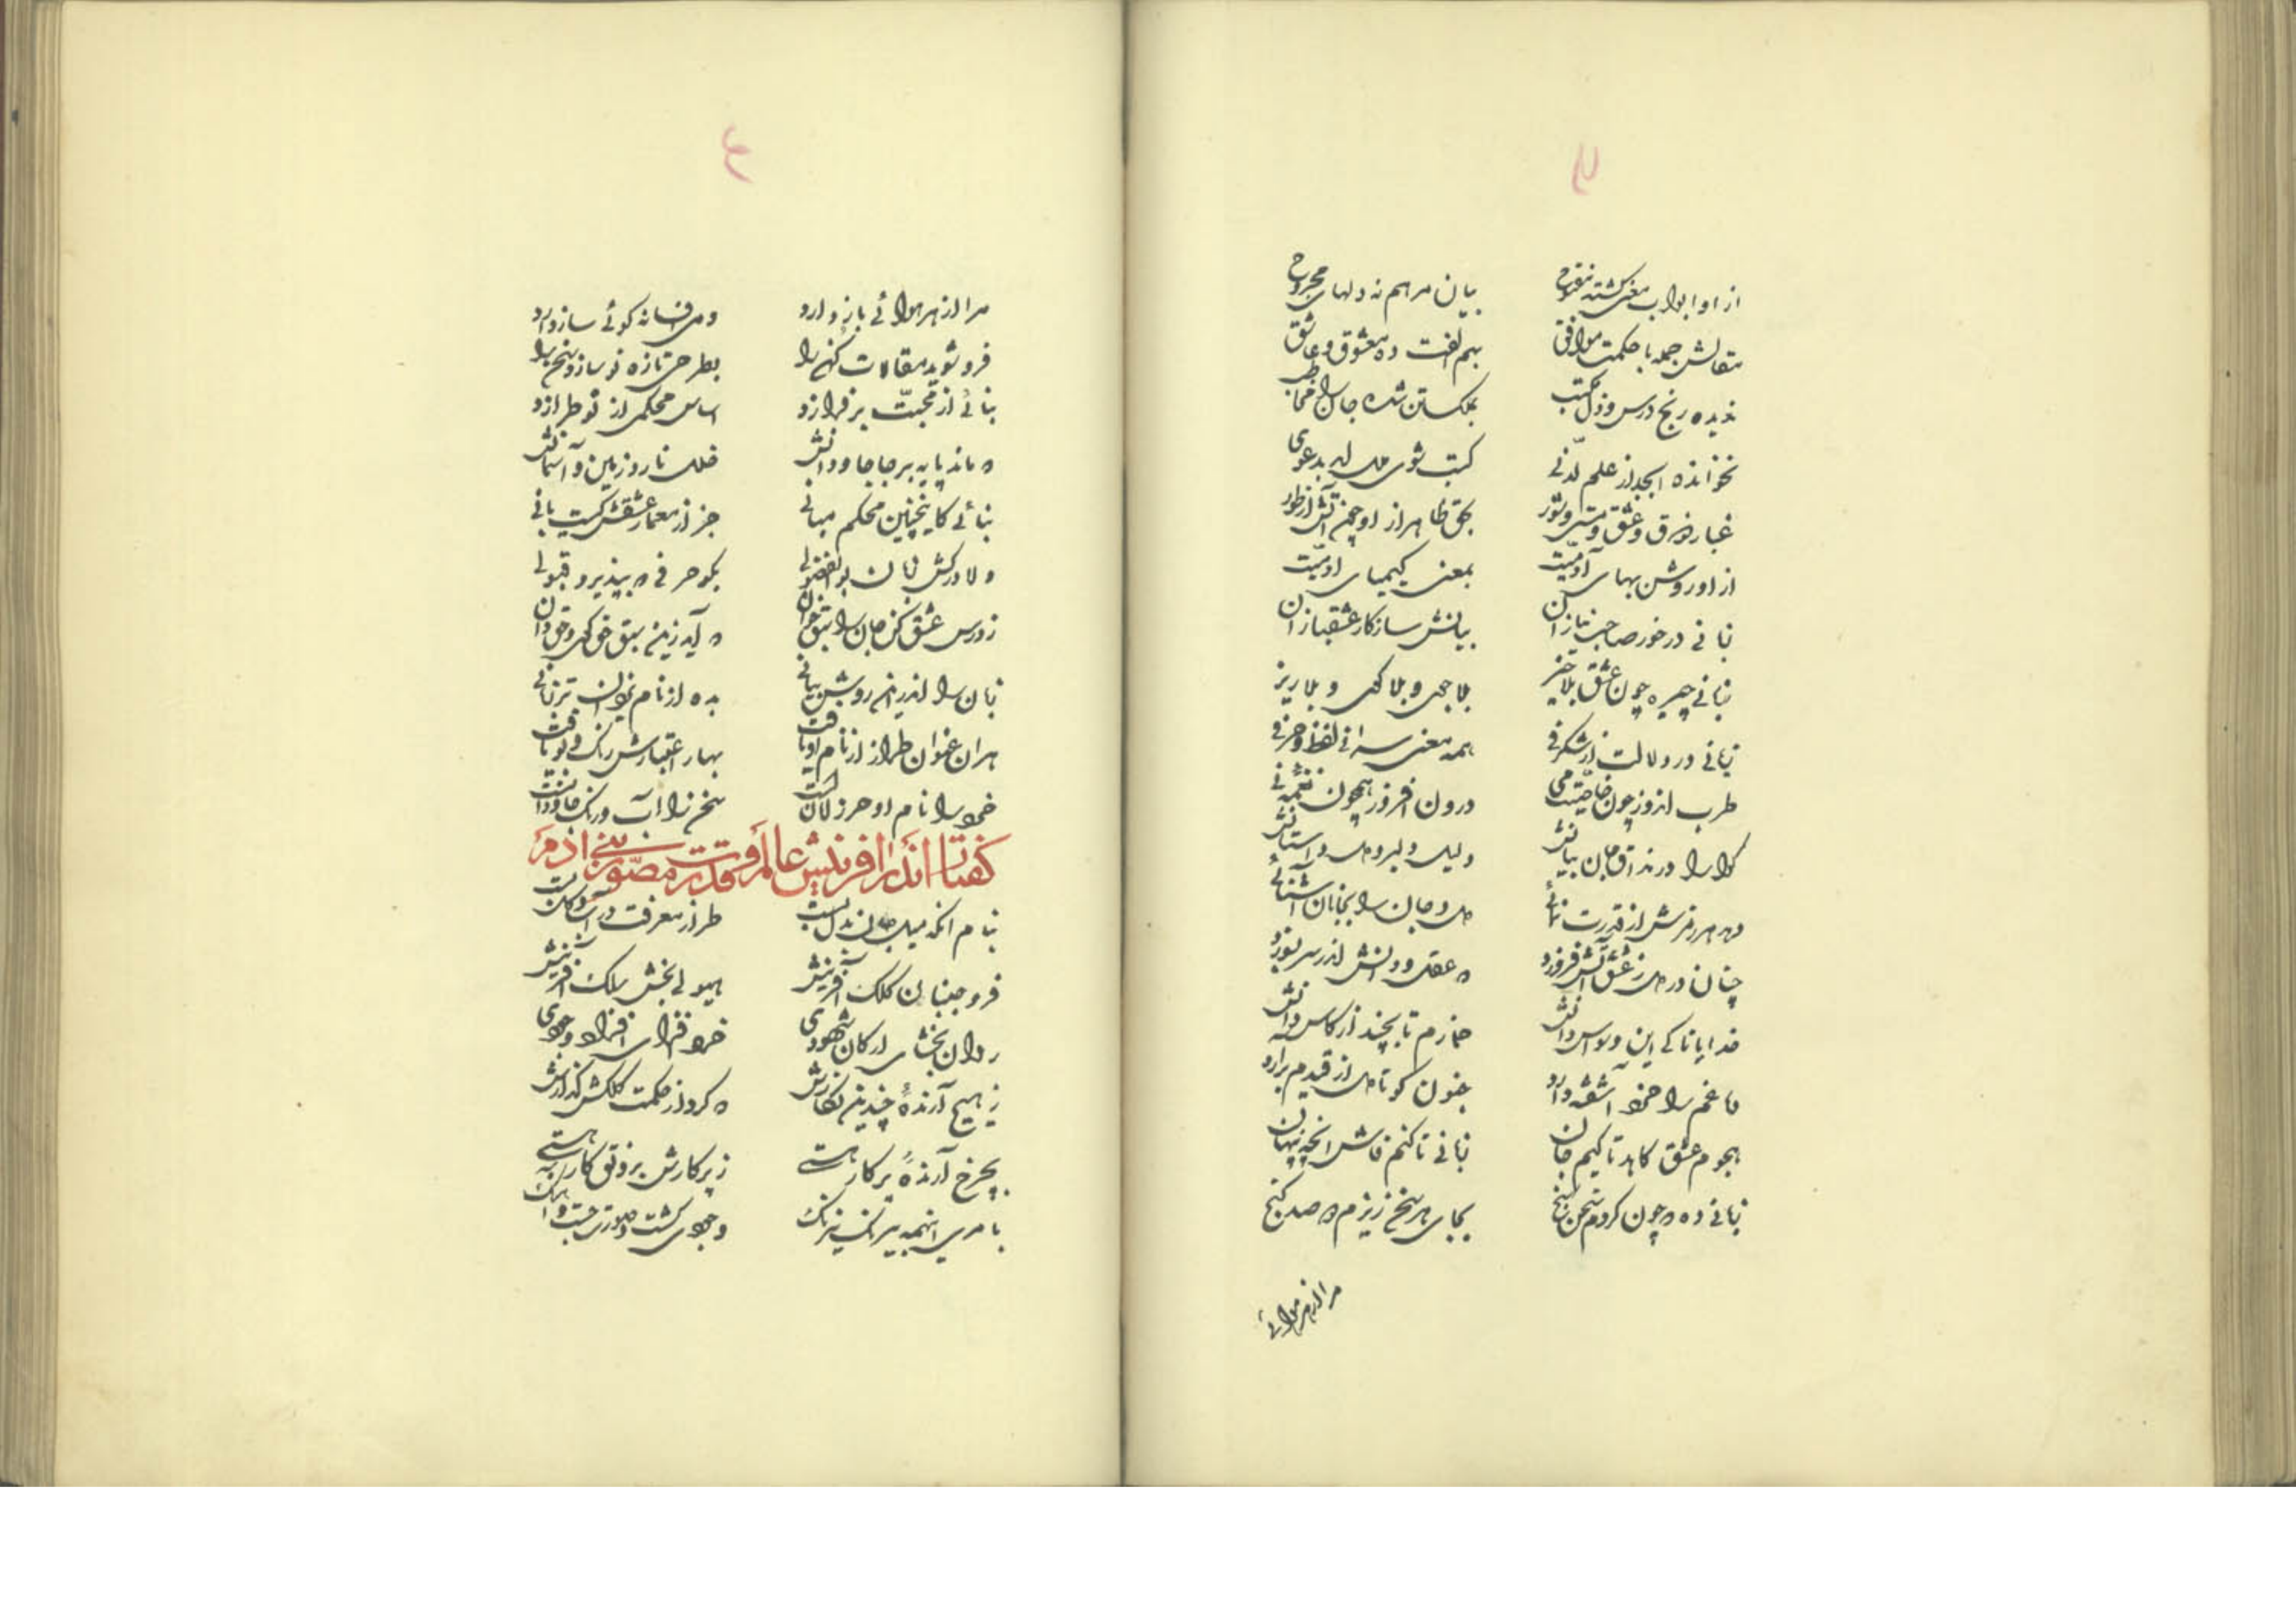 ۳
از او ابواب معنی گشته مفتوح بیان مرهم نه دلهای مجروح
مقالش جمله با حکمت موافق بهم الفت ده معشوق و عاشق
ندیده رنج درس و ذل مکتب بملک تن شده جانرا مخاطب
نخوانده ابجد از علم لدنی
غبار زرق و عشق و بحق ظاهر از او چون آتش از طور
از او روشن بهای آدمیت بمعنی کیمیای آدمیت
زبانی در خور صاحب نیازان بیانش سازکار عشقبازان
زبانی چیره چون عشق بلاخیز بلاجوی و بلاکوی و بلاریز
زبانی در دلالت از شگرفی همه معنی سرا فی لفظ و حرفی
طرب اندوز چون خاصیت می درون افروز همچون نغمه نی
گوارا در مذاق جان بیانش دلیل و لبر و دل داستانش
دهد هر ذره‌ش از قدرت نمائی دل و جان را بجانان آشنائی
چنان در دل ز عشق آتش فروزد که عقل و دانش اندر سر بسوزد
خدایا تا کی این وسواس دانش خمارم تا بچند از کاس دانش
دماغم را خرد آشفته دارد جنون کو تا دل از قیدم برارد
هجوم عشق کاهد تا کیم جان زبانی تا کنم فاش آنچه پنهان
زبانی ده که چون کردم سخن سنج بجای هر سخن ریزم دو صد گنج
مرا از هر هوائی
۴
مرا از هر هوائی باز دارد دمی افسانه گوئی ساز دارد
فرو شوید مقالات کهن را بطرحی تازه نو سازد سخن را
بنائی از محبت بر فرازد اساس محکمی از نو طرازد
که ماند پایه بر جا جاودانش خلل نارد زمین و آسمانش
بنائی کاینچنین محکم مبانی جز از معمار عشقش کیست بانی
دلا درکش زبان بوالفضولی بگو حرفی که بپذیرد قبولی
ز درس عشق کن جان را سبق خوان که آید زین سبق حق گوی و حق دان
زبان را اندرین روشن بیانی بده از نام یزدان ترزبانی
هر آن عنوان طراز از نام او یافت بهار اعتبارش رنگ و بو یافت
خرد را نام او حرز لسان است سخن را آب و رنگ جاودان است
گفتار اندر آفرینش عالم و قدرت مصور بنی آدم
بنام آنکه میل جان بدل بست طراز معرفت در آب و گل بست
فرو جنبان کلک آفرینش هیولی بخش ملک آفرینش
روان بخشای ارکان شهودی خرد افزای افراد وجودی
ز هیچ آرنده چندین نگارش که کرد از حکمت کلکش گذارش
بچرخ آرنده پرکار هستی ز پرکارش برونق کار هستی
با مری اینهمه نیرنگ وجودی گشت و صورت بست